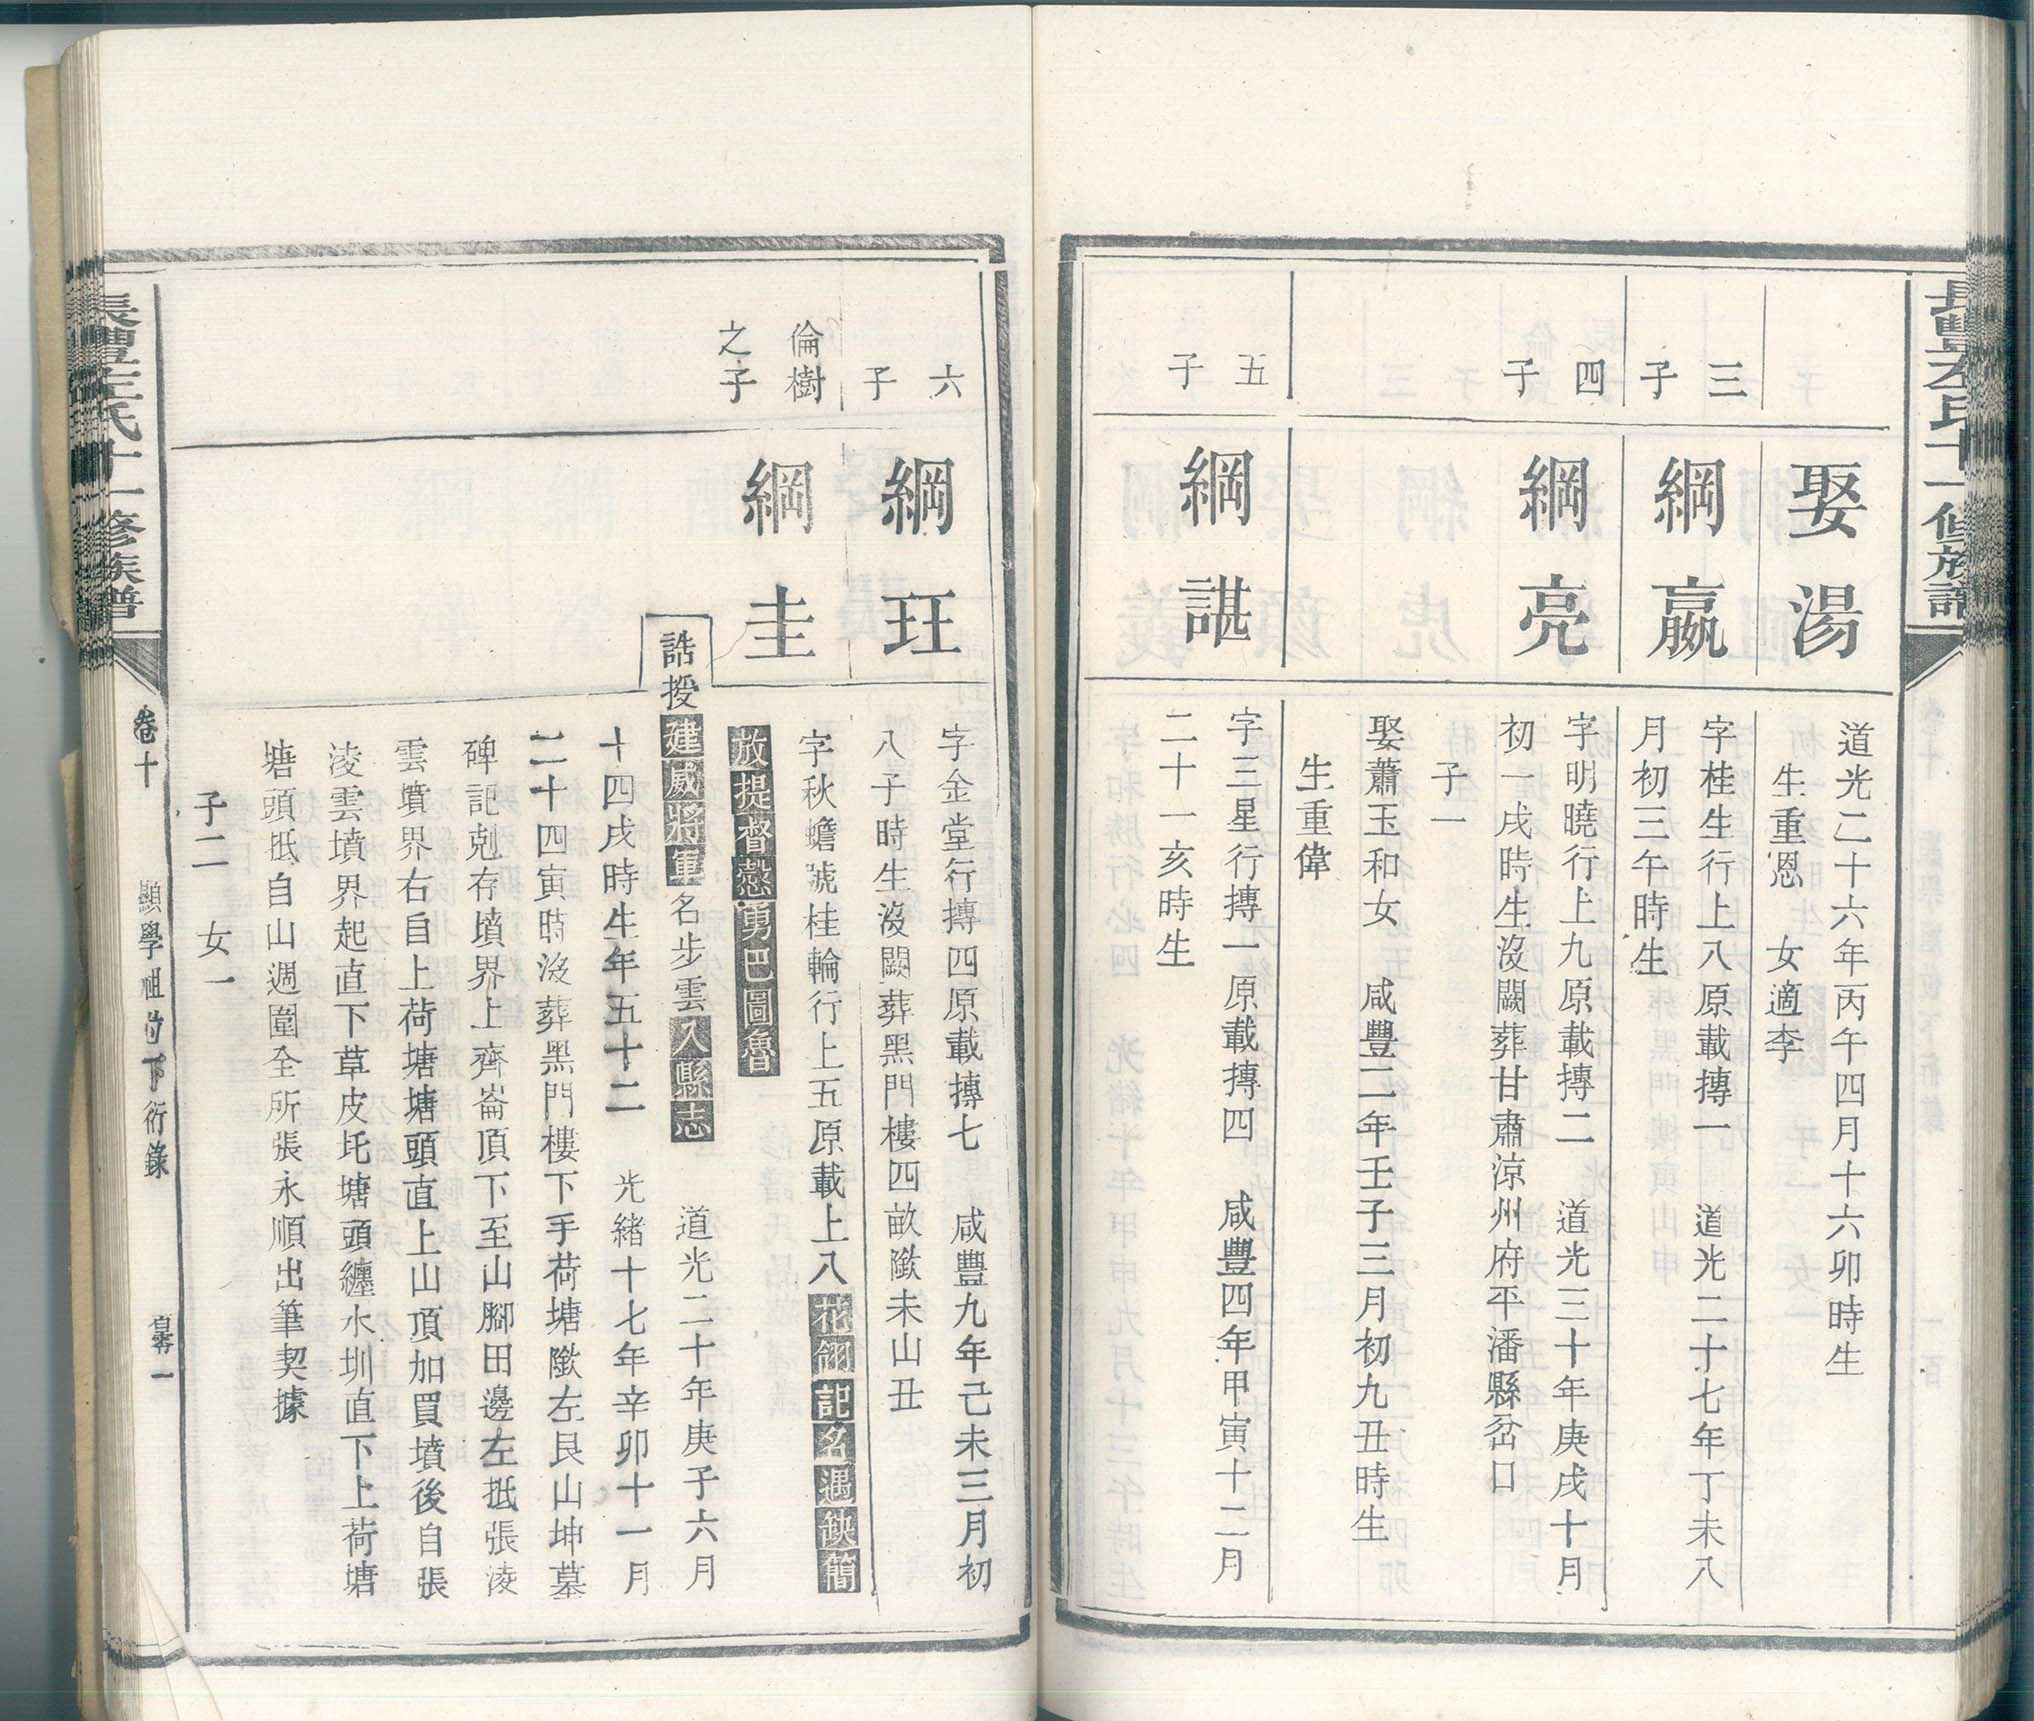 長豐左氏十一修族譜
娶湯
道光二十六年丙午四月十六卯時生
生重恩 女適李
三子
綱嬴
字桂生行上八原載摶一 道光二十七年丁未八
月初三午時生
四子
綱亮
字明曉行上九原載摶二 道光三十年庚戌十月
初一戌時生沒闕葬甘肅涼州府平潘縣岔口
子一
娶蕭玉和女 咸豐二年壬子三月初九丑時生
生重偉
五子
綱諶
字三星行摶一原載摶四 咸豐四年甲寅十二月
二十一亥時生
六子
綱玨
字金堂行摶四原載摶七 咸豐九年己未三月初
八子時生沒闕葬黑門樓四畝墩未山丑
倫樹
之子
綱圭
字秋蟾號桂輪行上五原載上八花翎記名遇缺簡
放提督慤勇巴圖魯
誥授建威將軍名步雲入縣志 道光二十年庚子六月
十四戌時生年五十二 光緒十七年辛卯十一月
二十四寅時沒葬黑門樓下手荷塘墩左艮山坤墓
碑記剋存墳界上齊崙頂下至山腳田邊左抵張淩
雲墳界右自上荷塘塘頭直上山頂加買墳後自張
淩雲墳界起直下草皮圫塘頭纏水圳直下上荷塘
塘頭抵自山週圍全所張永順出筆契據
子二 女一
長豐左氏十一修族譜
卷十
顯學祖位下衍錄